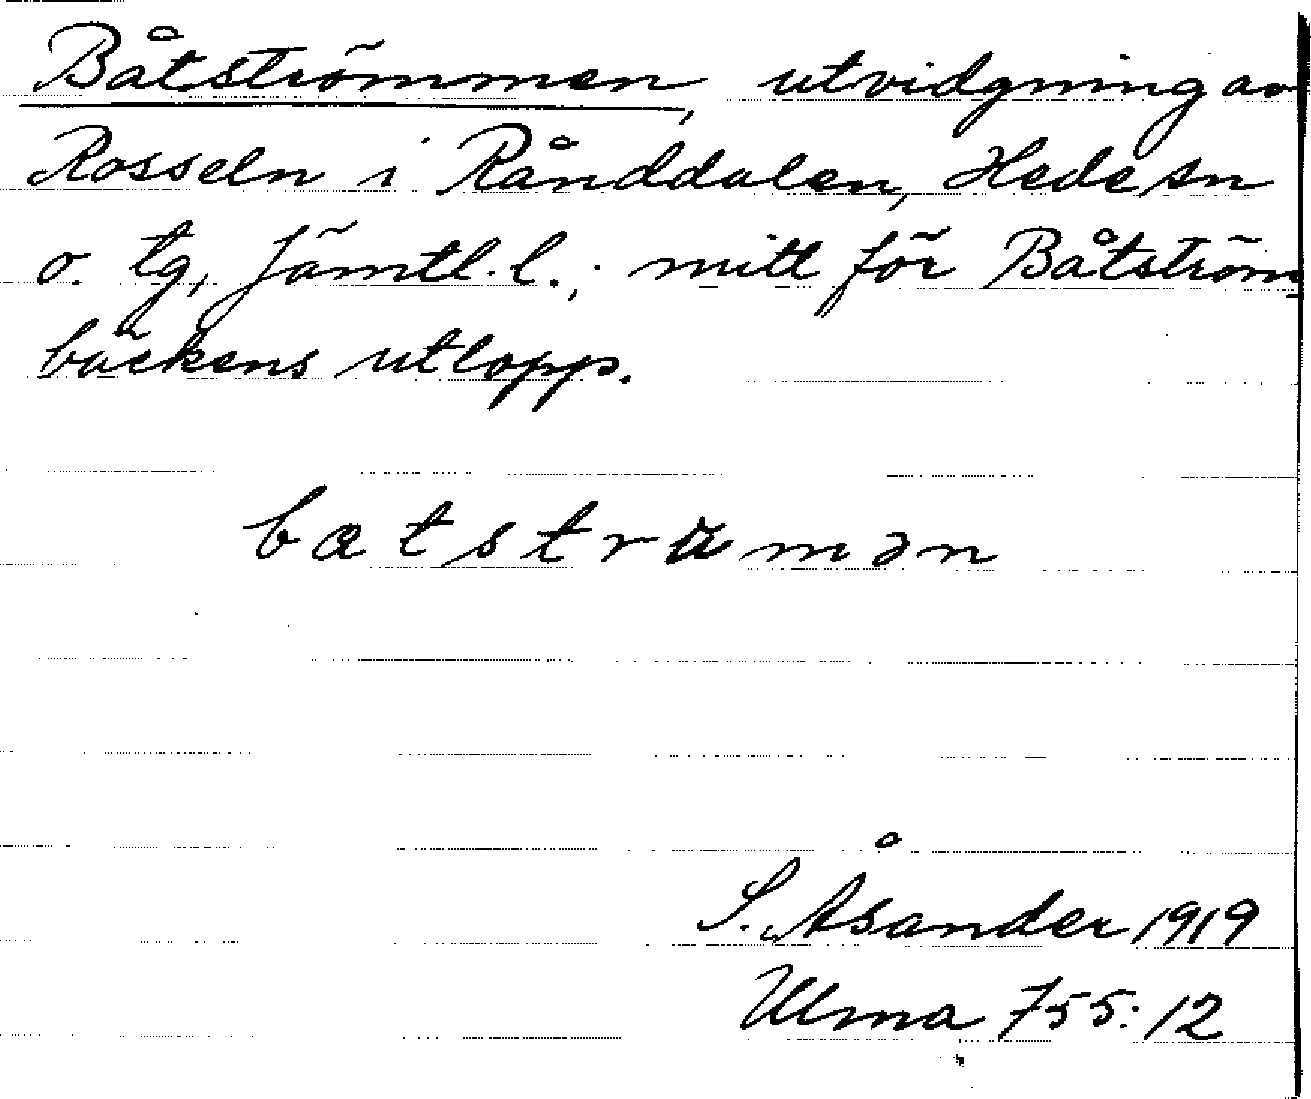 Båtströmmen, utvidgning av
Rosseln i Rånddalen, Hede sn
o. tg, Jämtl. l.; mitt för Båtström
bäckens utlopp.
bætströmən
S. Åsander 1919
Ulma 755:12